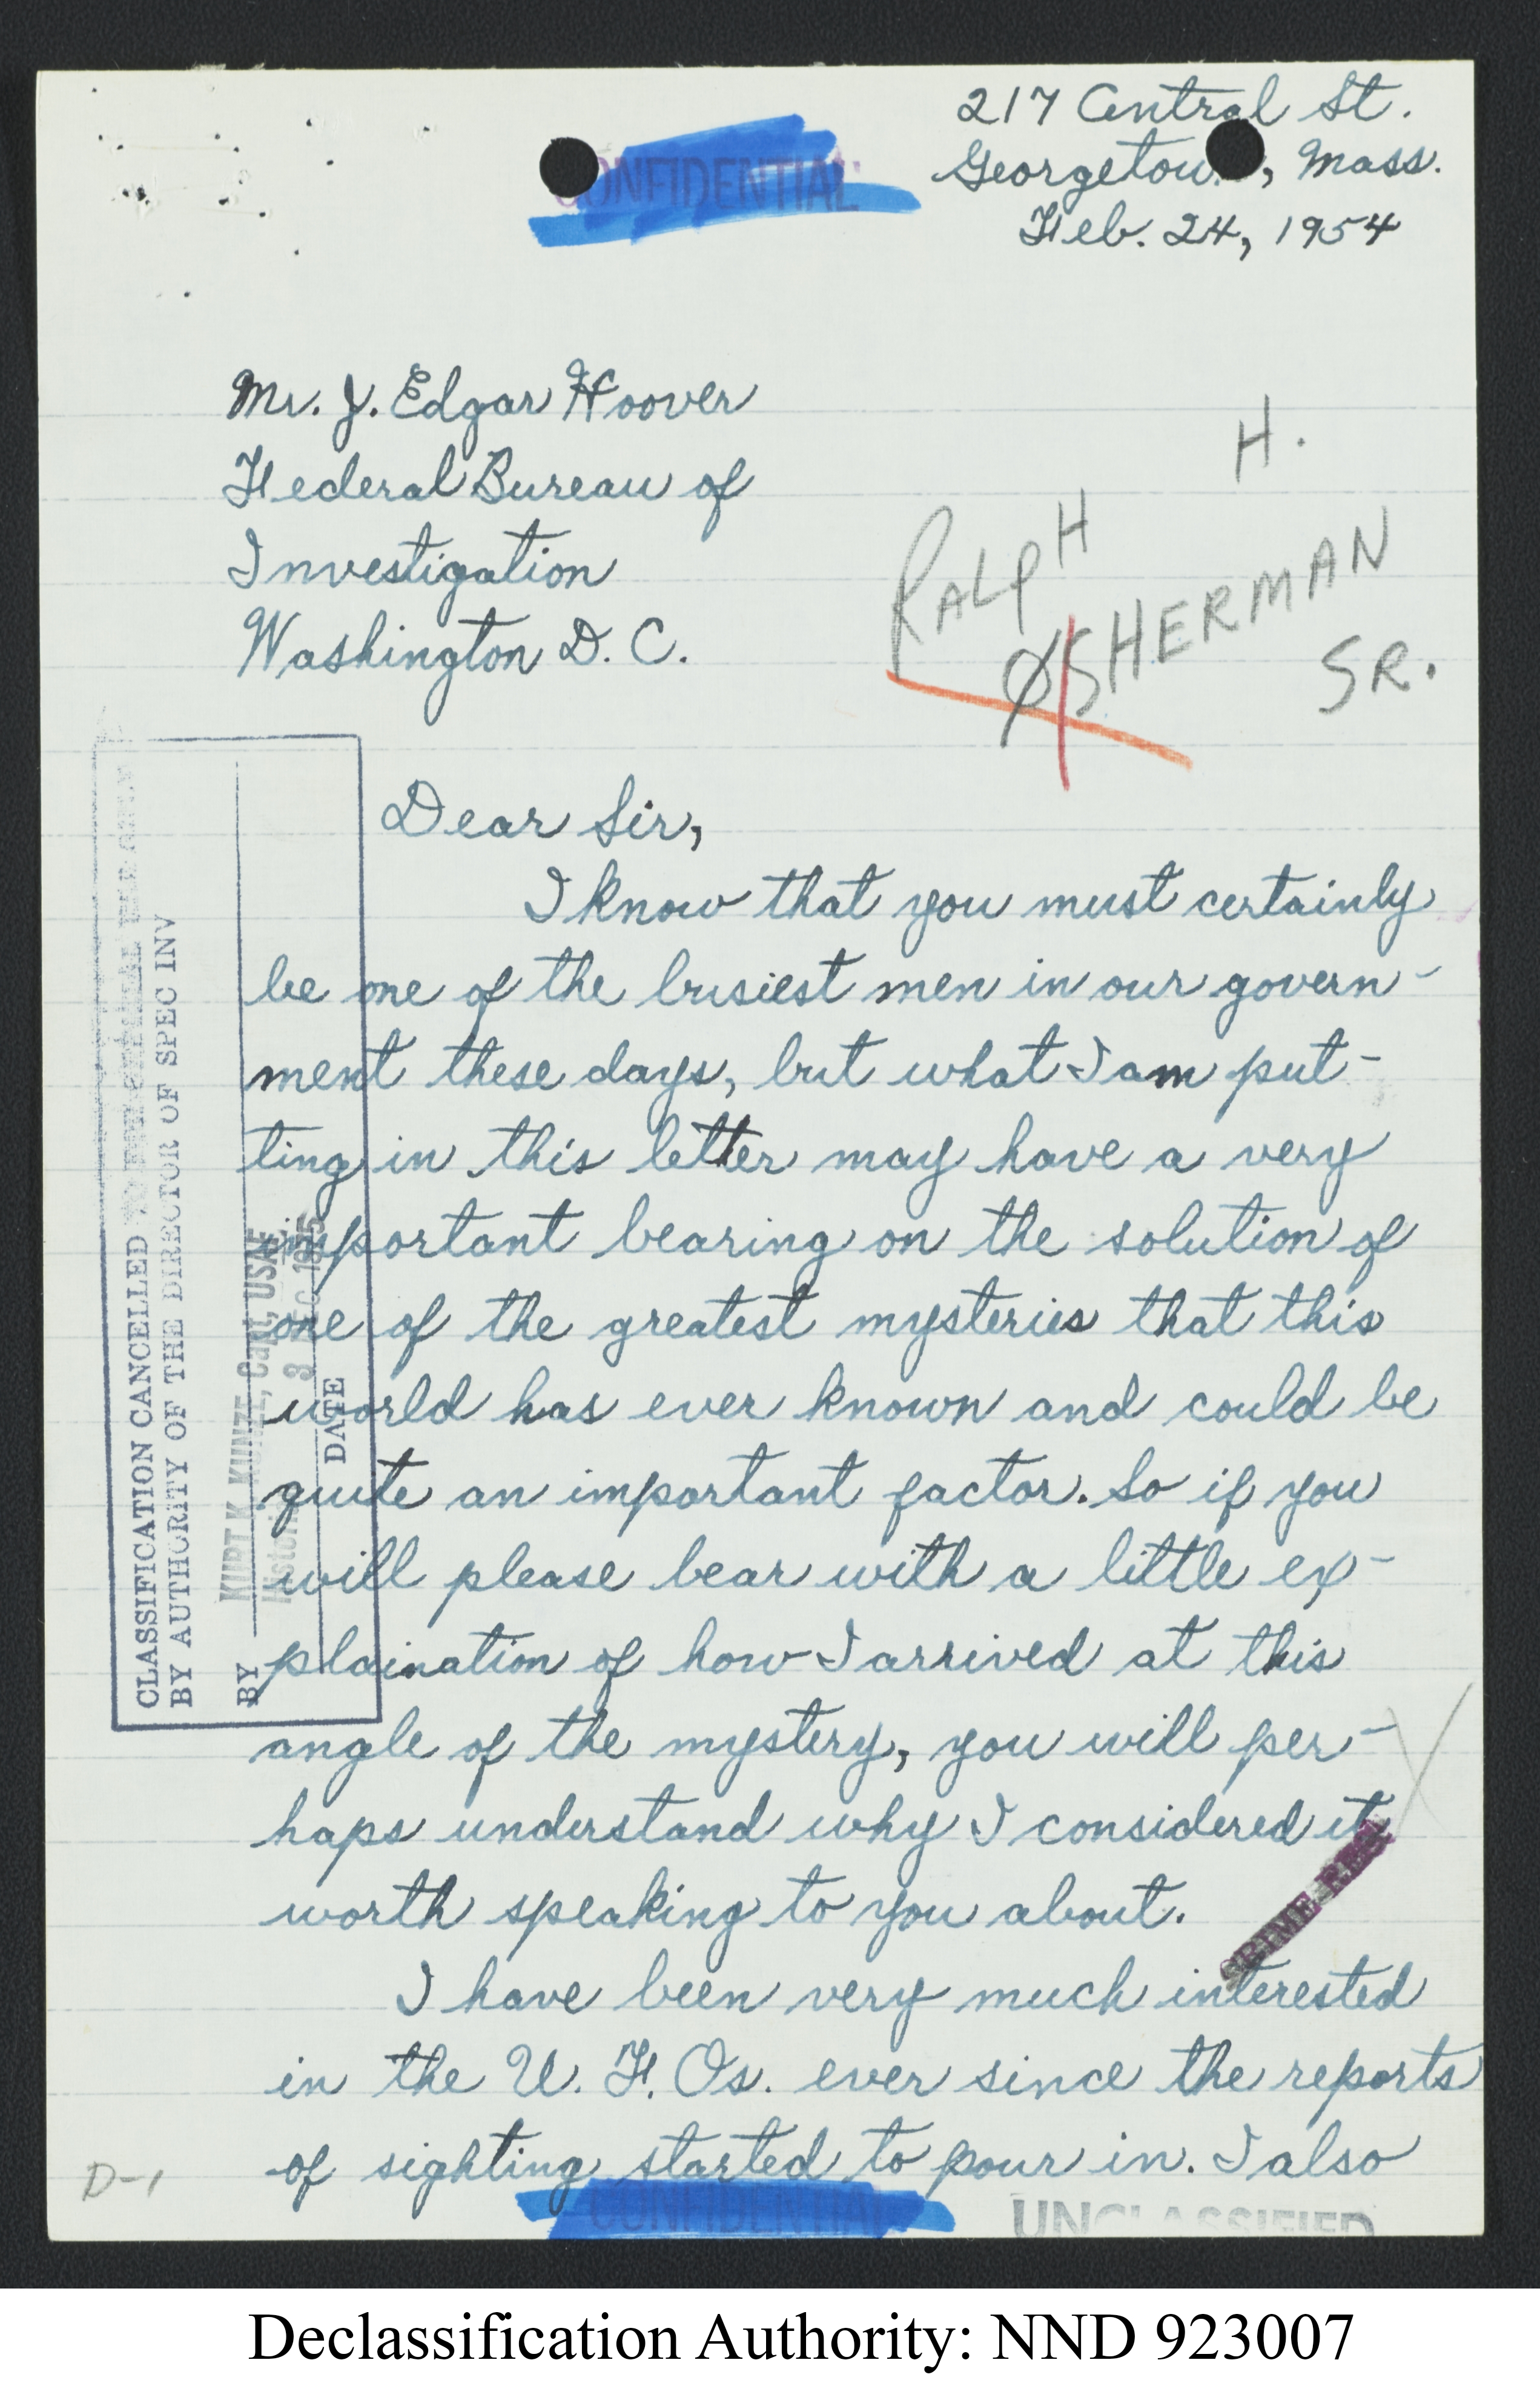 217 Central St.
Georgetow , Mass.
Feb. 24, 1954
CONFIDENTIAL
Mr. J. Edgar Hoover
Federal Bureau of
Investigation
Washington D. C.
H.
RALPH
SHERMAN
SR.
Dear Sir,
I know that you must certainly
be one of the busiest men in our govern-
ment these days, but what I am put-
ting in this letter may have a very
important bearing on the solution of
one of the greatest mysteries that this
world has ever known and could be
quite an important factor. So if you
will please bear with a little ex-
plaination of how I arrived at this
angle of the mystery, you will per-
haps understand why I considered it
worth speaking to you about.
I have been very much interested
in the U. F. Os. ever since the reports
of sighting started to pour in. I also
CLASSIFICATION CANCELLED
BY AUTHORITY OF THE DIRECTOR OF SPEC INV
BY KURT K. KUNZE, Capt, USAF
DATE 3 DEC 1975
D-1
CONFIDENTIAL
UNCLASSIFIED
Declassification Authority: NND 923007